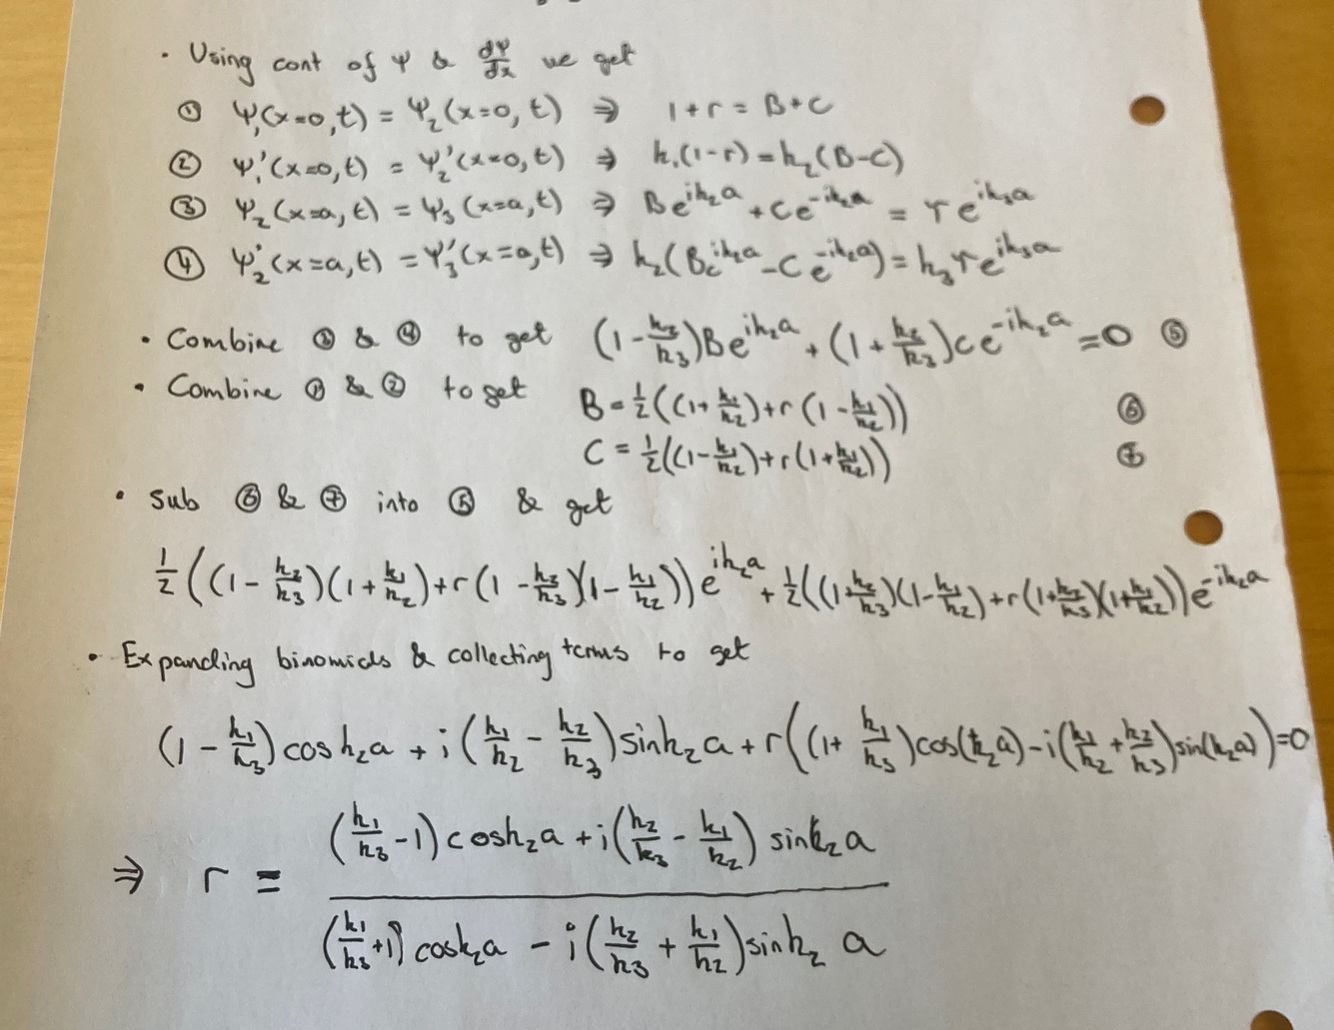 · Using cont of ψ & dψ/dx we get
① ψ₁(x=0,t) = ψ₂(x=0,t) ⇒ 1+r = B+C
② ψ₁'(x=0,t) = ψ₂'(x=0,t) ⇒ k₁(1-r)=k₂(B-C)
③ ψ₂(x=a,t) = ψ₃(x=a,t) ⇒ Be^{ik₂a} + Ce^{-ik₂a} = τe^{ik₃a}
④ ψ₂'(x=a,t) = ψ₃'(x=a,t) ⇒ k₂(Be^{ik₂a} - Ce^{-ik₂a}) = k₃τe^{ik₃a}
· Combine ③ & ④ to get (1 - k₂/k₃)Be^{ik₂a} + (1 + k₂/k₃)Ce^{-ik₂a} = 0 ⑤
· Combine ① & ② to get B = ½((1+k₁/k₂)+r(1-k₁/k₂)) ⑥
C = ½((1-k₁/k₂)+r(1+k₁/k₂)) ⑦
· Sub ⑥ & ⑦ into ⑤ & get
½((1 - k₂/k₃)(1 + k₁/k₂)+r(1 - k₂/k₃)(1 - k₁/k₂))e^{ik₂a} + ½((1+k₂/k₃)(1-k₁/k₂)+r(1+k₂/k₃)(1+k₁/k₂))e^{-ik₂a}
· Expanding binomials & collecting terms to get
(1 - k₁/k₃)cosk₂a + i(k₁/k₂ - k₂/k₃)sink₂a + r((1+ k₁/k₃)cos(k₂a) - i(k₁/k₂ + k₂/k₃)sin(k₂a))=0
⇒ r = ((k₁/k₃ - 1)cosk₂a + i(k₂/k₃ - k₁/k₂) sink₂a)/((k₁/k₃ + 1)cosk₂a - i(k₂/k₃ + k₁/k₂)sink₂a)